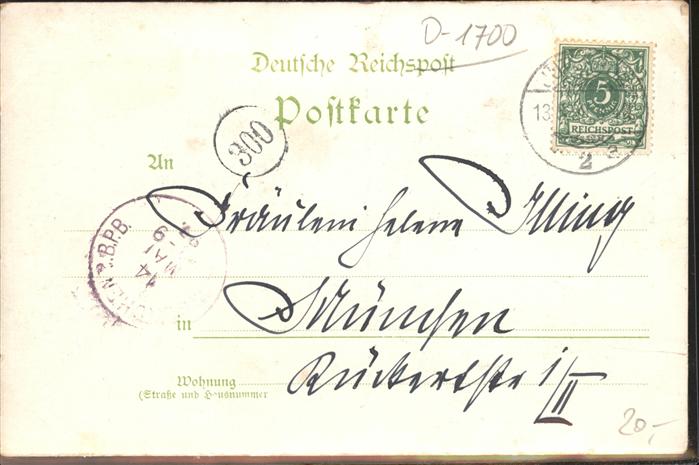 D-1700
Deutsche Reichspost
Postkarte
5
REICHSPOST
13
2 a
300
An
Fräulein Helene Illing
B.P.B.
14
MAI
in München
Rückertstr 1/II
Wohnung
(Straße und Hausnummer
20,-